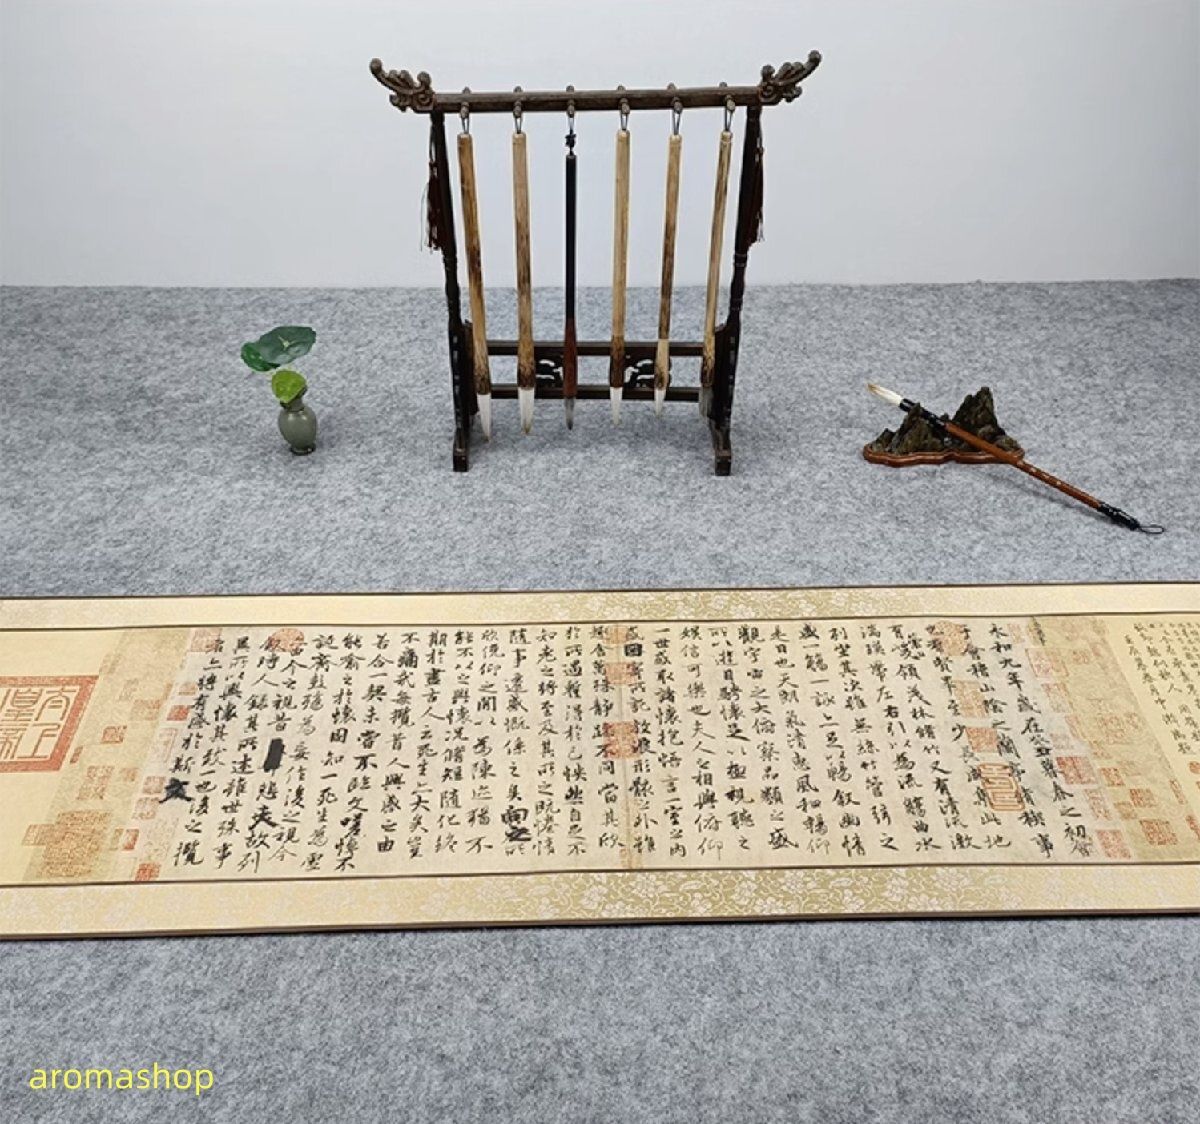 永和九年歲在癸丑暮春之初會
于會稽山陰之蘭亭脩稧事
也羣賢畢至少長咸集此地
有崇山峻領茂林脩竹又有清流激
湍暎帶左右引以為流觴曲水
列坐其次雖無絲竹管弦之
盛一觴一詠亦足以暢敘幽情
是日也天朗氣清惠風和暢仰
觀宇宙之大俯察品類之盛
所以遊目騁懷足以極視聽之
娛信可樂也夫人之相與俯仰
一世或取諸懷抱悟言一室之內
或因寄所託放浪形骸之外雖
趣舍萬殊靜躁不同當其欣
於所遇蹔得於己怏然自足不
知老之將至及其所之既惓情
隨事遷感慨係之矣向之所
欣俛仰之閒以為陳迹猶不
能不以之興懷況脩短隨化終
期於盡古人云死生亦大矣豈
不痛哉每攬昔人興感之由
若合一契未嘗不臨文嗟悼不
能喻之於懷固知一死生為虛
誕齊彭殤為妄作後之視今
亦由今之視昔悲夫故列
敘時人錄其所述雖世殊事
異所以興懷其致一也後之攬
者亦將有感於斯文
aromashop